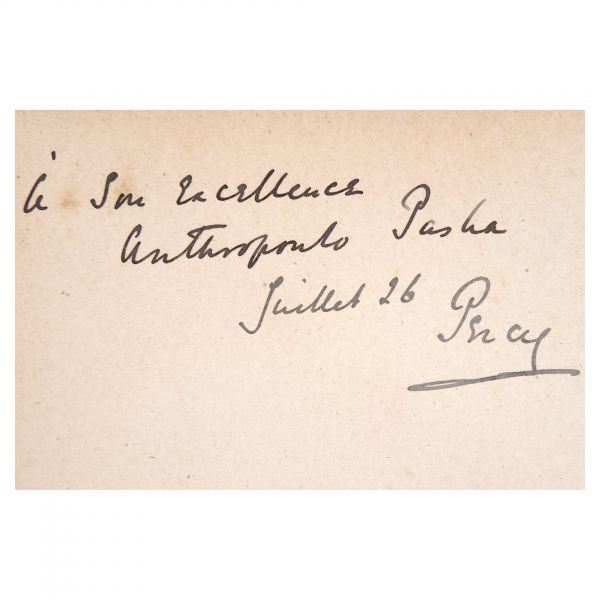 à Son Excellence
Anthropoulo Pasha
Juillet 26
Percy